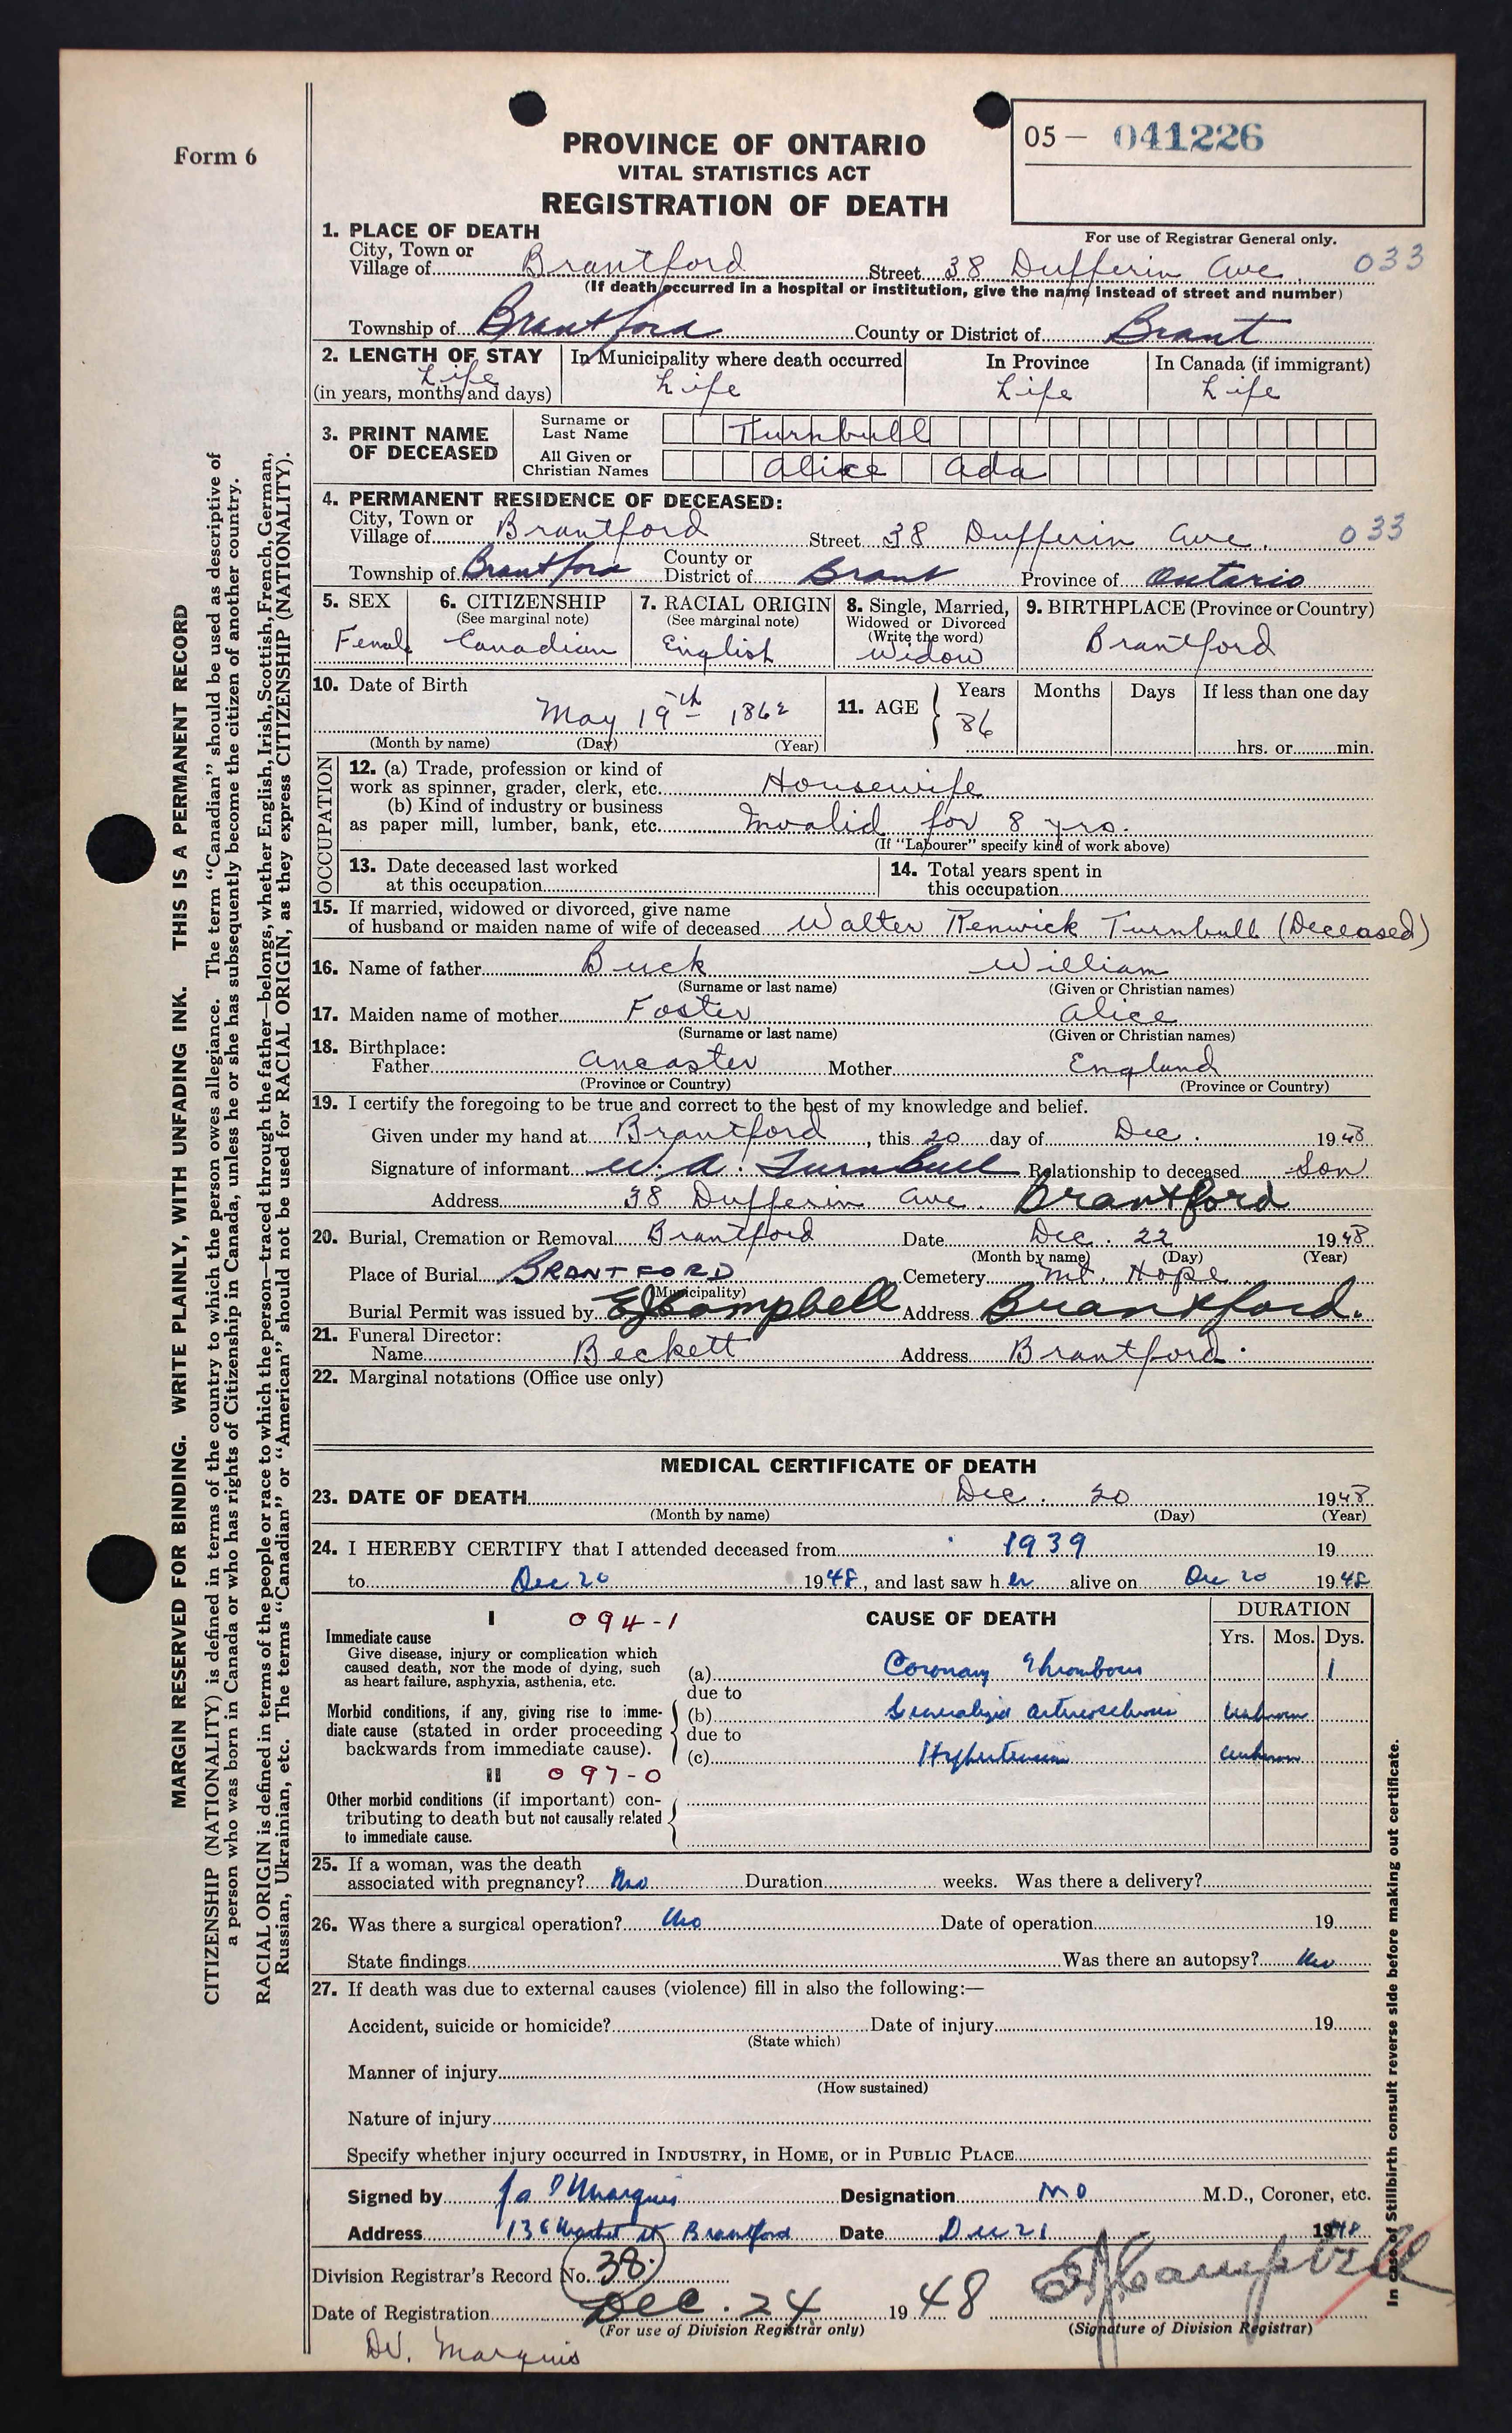 Form 6
05 — 041226
PROVINCE OF ONTARIO
VITAL STATISTICS ACT
REGISTRATION OF DEATH
For use of Registrar General only.
1. PLACE OF DEATH
City, Town or
Village of Brantford Street 38 Dufferin Ave. 033
(If death occurred in a hospital or institution, give the name instead of street and number)
Township of Brantford County or District of Brant
2. LENGTH OF STAY In Municipality where death occurred In Province In Canada (if immigrant)
Life Life Life Life
(in years, months and days)
3. PRINT NAME OF DECEASED
Surname or Last Name Turnbull
All Given or Christian Names Alice Ada
4. PERMANENT RESIDENCE OF DECEASED:
City, Town or
Village of Brantford Street 38 Dufferin Ave. 033
Township of Brantford County or District of Brant Province of Ontario
5. SEX 6. CITIZENSHIP 7. RACIAL ORIGIN 8. Single, Married, 9. BIRTHPLACE (Province or Country)
(See marginal note) (See marginal note) Widowed or Divorced
(Write the word)
Female Canadian English Widow Brantford
10. Date of Birth 11. AGE Years Months Days If less than one day
May 19th 1862 86
(Month by name) (Day) (Year) hrs. or min.
OCCUPATION
12. (a) Trade, profession or kind of
work as spinner, grader, clerk, etc. Housewife
(b) Kind of industry or business
as paper mill, lumber, bank, etc. Invalid for 8 yrs.
(If "Labourer" specify kind of work above)
13. Date deceased last worked 14. Total years spent in
at this occupation this occupation
15. If married, widowed or divorced, give name
of husband or maiden name of wife of deceased Walter Renwick Turnbull (Deceased)
16. Name of father Buck William
(Surname or last name) (Given or Christian names)
17. Maiden name of mother Foster Alice
(Surname or last name) (Given or Christian names)
18. Birthplace:
Father Ancaster Mother England
(Province or Country) (Province or Country)
19. I certify the foregoing to be true and correct to the best of my knowledge and belief.
Given under my hand at Brantford, this 20 day of Dec. 1948
Signature of informant W. A. Turnbull Relationship to deceased Son
Address 38 Dufferin Ave. Brantford
20. Burial, Cremation or Removal Brantford Date Dec. 22 1948
(Month by name) (Day) (Year)
Place of Burial BRANTFORD Cemetery Mt. Hope
(Municipality)
Burial Permit was issued by EJCampbell Address Brantford.
21. Funeral Director:
Name Beckett Address Brantford.
22. Marginal notations (Office use only)
MEDICAL CERTIFICATE OF DEATH
23. DATE OF DEATH Dec. 20 1948
(Month by name) (Day) (Year)
24. I HEREBY CERTIFY that I attended deceased from 1939 19
to Dec 20 1948, and last saw her alive on Dec 20 1948
I 094-1 CAUSE OF DEATH DURATION
Immediate cause Yrs. Mos. Dys.
Give disease, injury or complication which
caused death, NOT the mode of dying, such
as heart failure, asphyxia, asthenia, etc. (a) Coronary Thrombosis 1
due to
Morbid conditions, if any, giving rise to imme-
diate cause (stated in order proceeding
backwards from immediate cause). (b) Generalized arteriosclerosis unknown
due to
(c) Hypertension unknown
II 097-0
Other morbid conditions (if important) con-
tributing to death but not causally related
to immediate cause.
25. If a woman, was the death
associated with pregnancy? No Duration weeks. Was there a delivery?
26. Was there a surgical operation? No Date of operation 19
State findings Was there an autopsy? No
27. If death was due to external causes (violence) fill in also the following:—
Accident, suicide or homicide? Date of injury 19
(State which)
Manner of injury
(How sustained)
Nature of injury
Specify whether injury occurred in INDUSTRY, in HOME, or in PUBLIC PLACE
Signed by Marquis Designation MD M.D., Coroner, etc.
Address 136 Market St Brantford Date Dec 21 1948
Division Registrar's Record No. 38.
Date of Registration Dec. 24 1948 EJCampbell
(For use of Division Registrar only) (Signature of Division Registrar)
Dr. Marquis
MARGIN RESERVED FOR BINDING. WRITE PLAINLY, WITH UNFADING INK. THIS IS A PERMANENT RECORD
CITIZENSHIP (NATIONALITY) is defined in terms of the country to which the person owes allegiance. The term "Canadian" should be used as descriptive of
a person who was born in Canada or who has rights of Citizenship in Canada, unless he or she has subsequently become the citizen of another country.
RACIAL ORIGIN is defined in terms of the people or race to which the person—traced through the father—belongs, whether English, Irish, Scottish, French, German,
Russian, Ukrainian, etc. The terms "Canadian" or "American" should not be used for RACIAL ORIGIN, as they express CITIZENSHIP (NATIONALITY).
In case of Stillbirth consult reverse side before making out certificate.